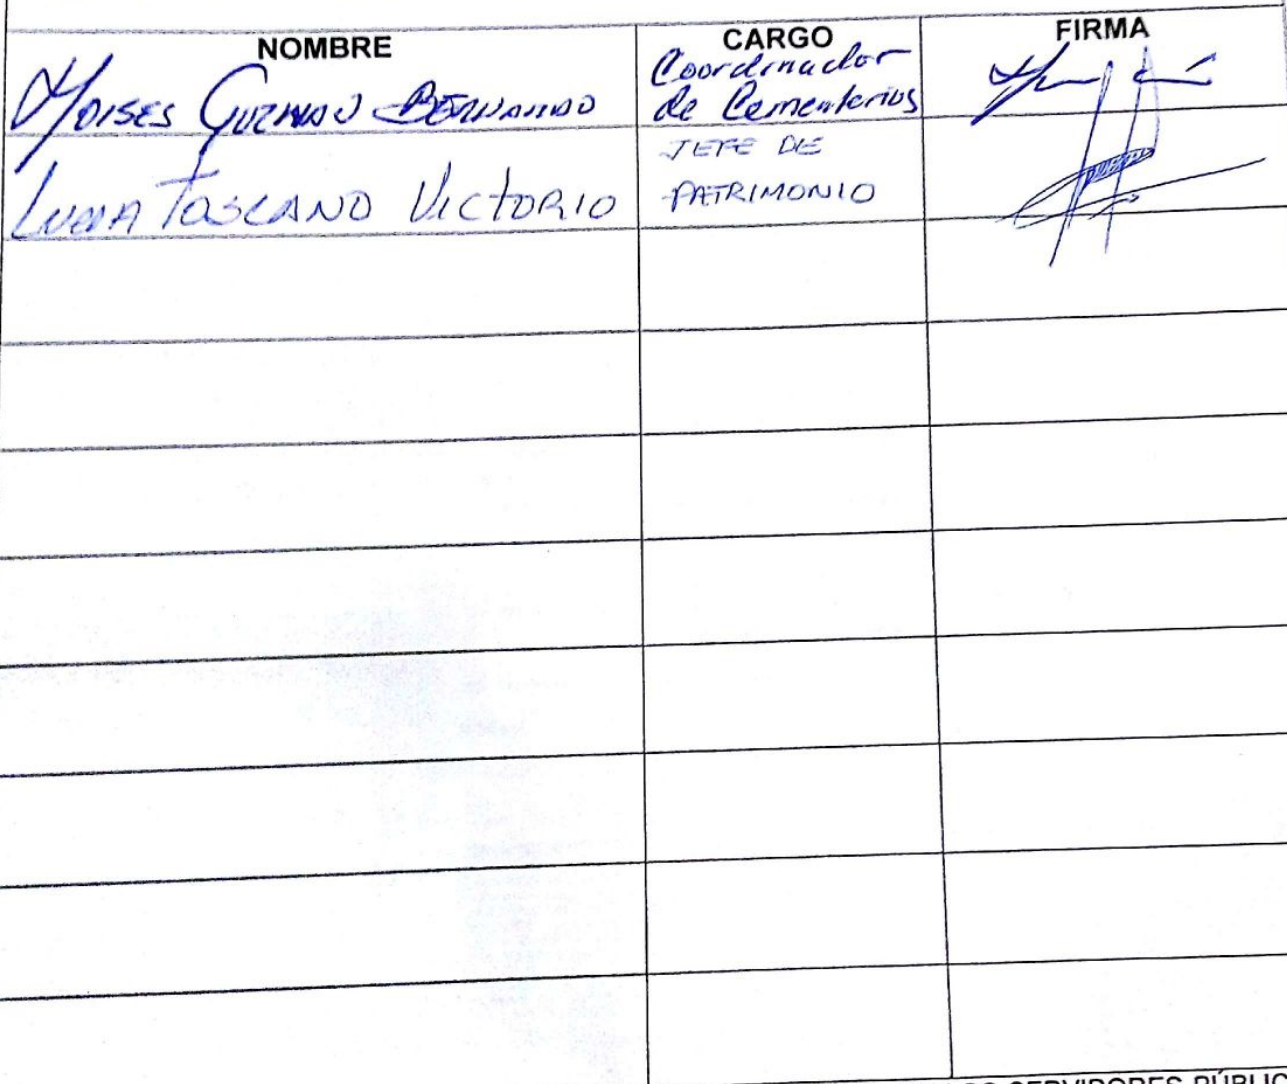 NOMBRE CARGO FIRMA
MOISES GUZMAN BERNARDO Coordinador
de Cementerios
LUCIA TOSCANO VICTORIO JEFE DE
PATRIMONIO
SERVIDORES